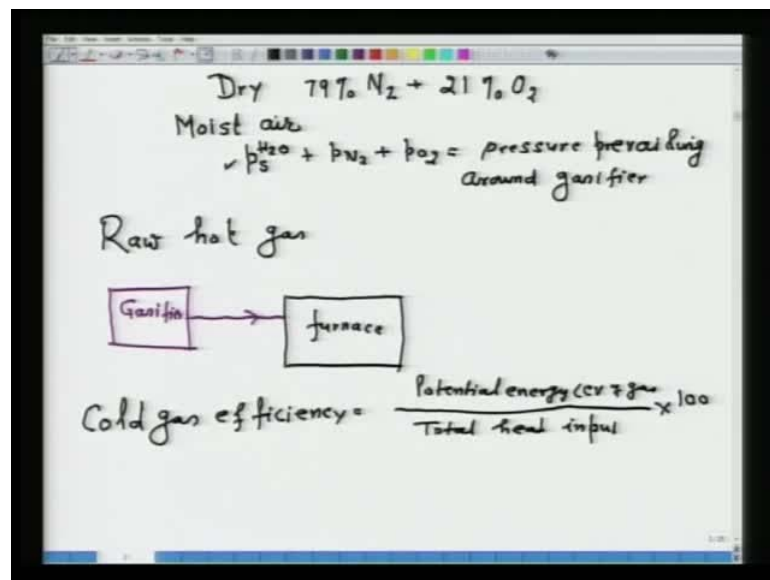 Dry 79% N2 + 21% O2
Moist air
✓ pS^H2O + pN2 + pO2 = pressure prevailing
around gasifier
Raw hot gas
Gasifier
furnace
Cold gas efficiency = Potential energy (CV of gas / Total heat input × 100